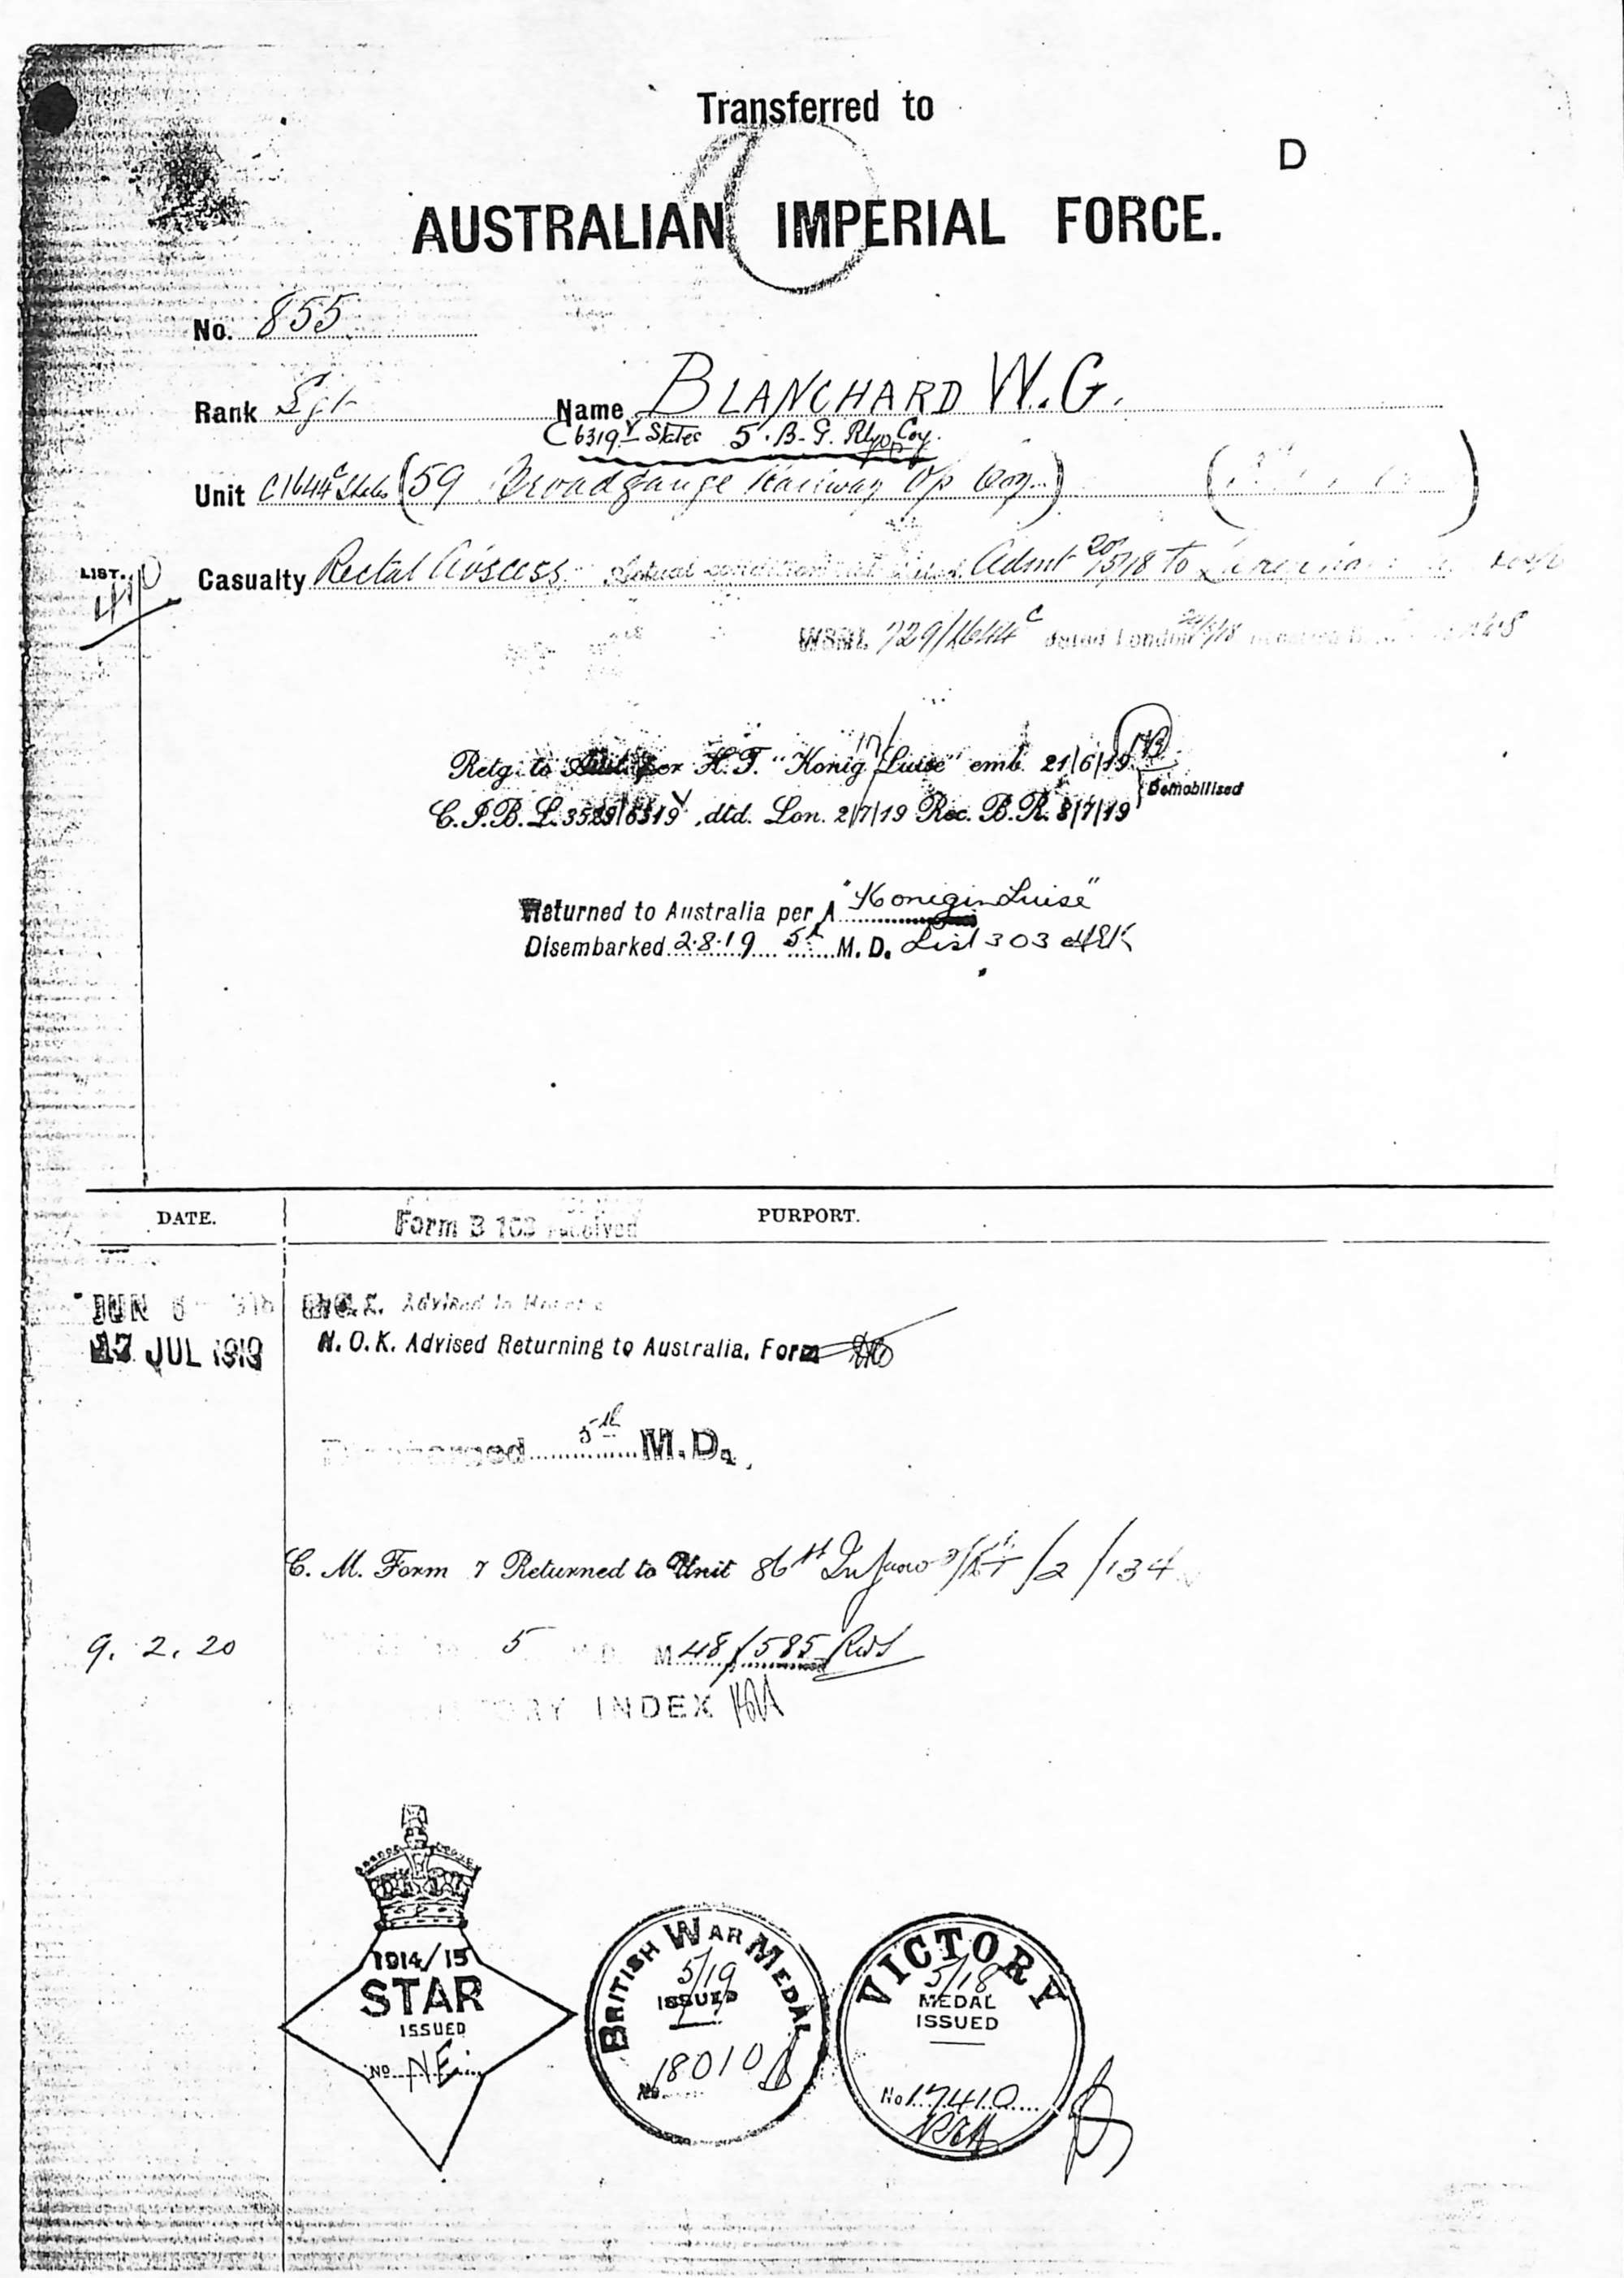 Transferred to
D
AUSTRALIAN IMPERIAL FORCE.
No. 855
Rank Sgt Name BLANCHARD W.G.
C 6319 Y States 5. B.G. Rlyop Coy.
Unit C1644 C States (59 Broadgauge Railway Op Coy.)
LIST.
410
Casualty Rectal Abscess Admt 20/5/18 to
729/1644 C dated London
Retg. to Aust. per H.T. "Konig Luise" emb. 21/6/19
Demobilised
C.I.B.L. 3529/6319 Y, dtd. Lon. 2/7/19 Rec. B.R. 8/7/19
Returned to Australia per A "Konigin Luise"
Disembarked 2.8.19 5th M.D. List 303
DATE. PURPORT.
Form B 103 received
JUN N.O.K. Advised
17 JUL 1919 N.O.K. Advised Returning to Australia, Form
Discharged 5th M.D.
C. M. Form 7 Returned to Unit 86th /2/134
9. 2. 20 5 M 48/585
INDEX
1914/15
STAR
ISSUED
No
BRITISH WAR MEDAL
5/19
ISSUED
No 18010
VICTORY
5/18
MEDAL
ISSUED
No 17410